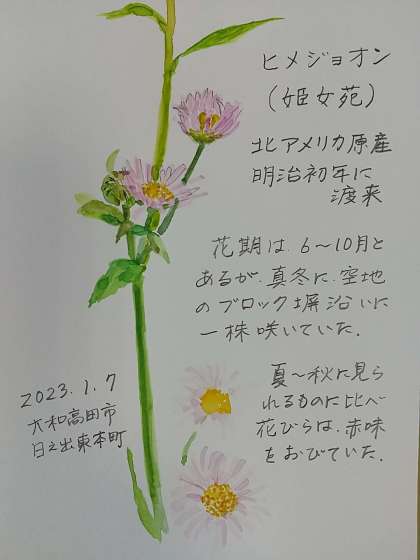 ヒメジョオン
(姫女苑)
北アメリカ原産
明治初年に
渡来
花期は、6〜10月と
あるが、真冬に、空地
のブロック塀沿いに
一株咲いていた。
夏〜秋に見ら
れるものに比べ
花びらは、赤味
をおびていた。
2023.1.7
大和高田市
日之出東本町